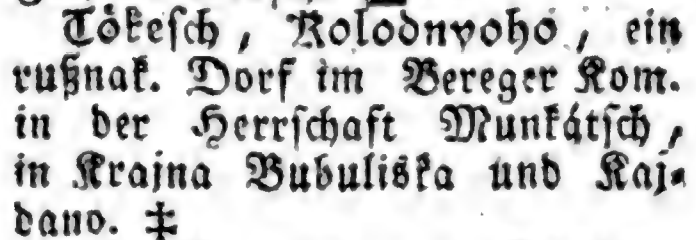 Tökesch, Kolodnyoho, ein
rußnak. Dorf im Bereger Kom.
in der Herrschaft Munkátsch,
in Krajna Bubuliska und Kaj-
dano. ‡